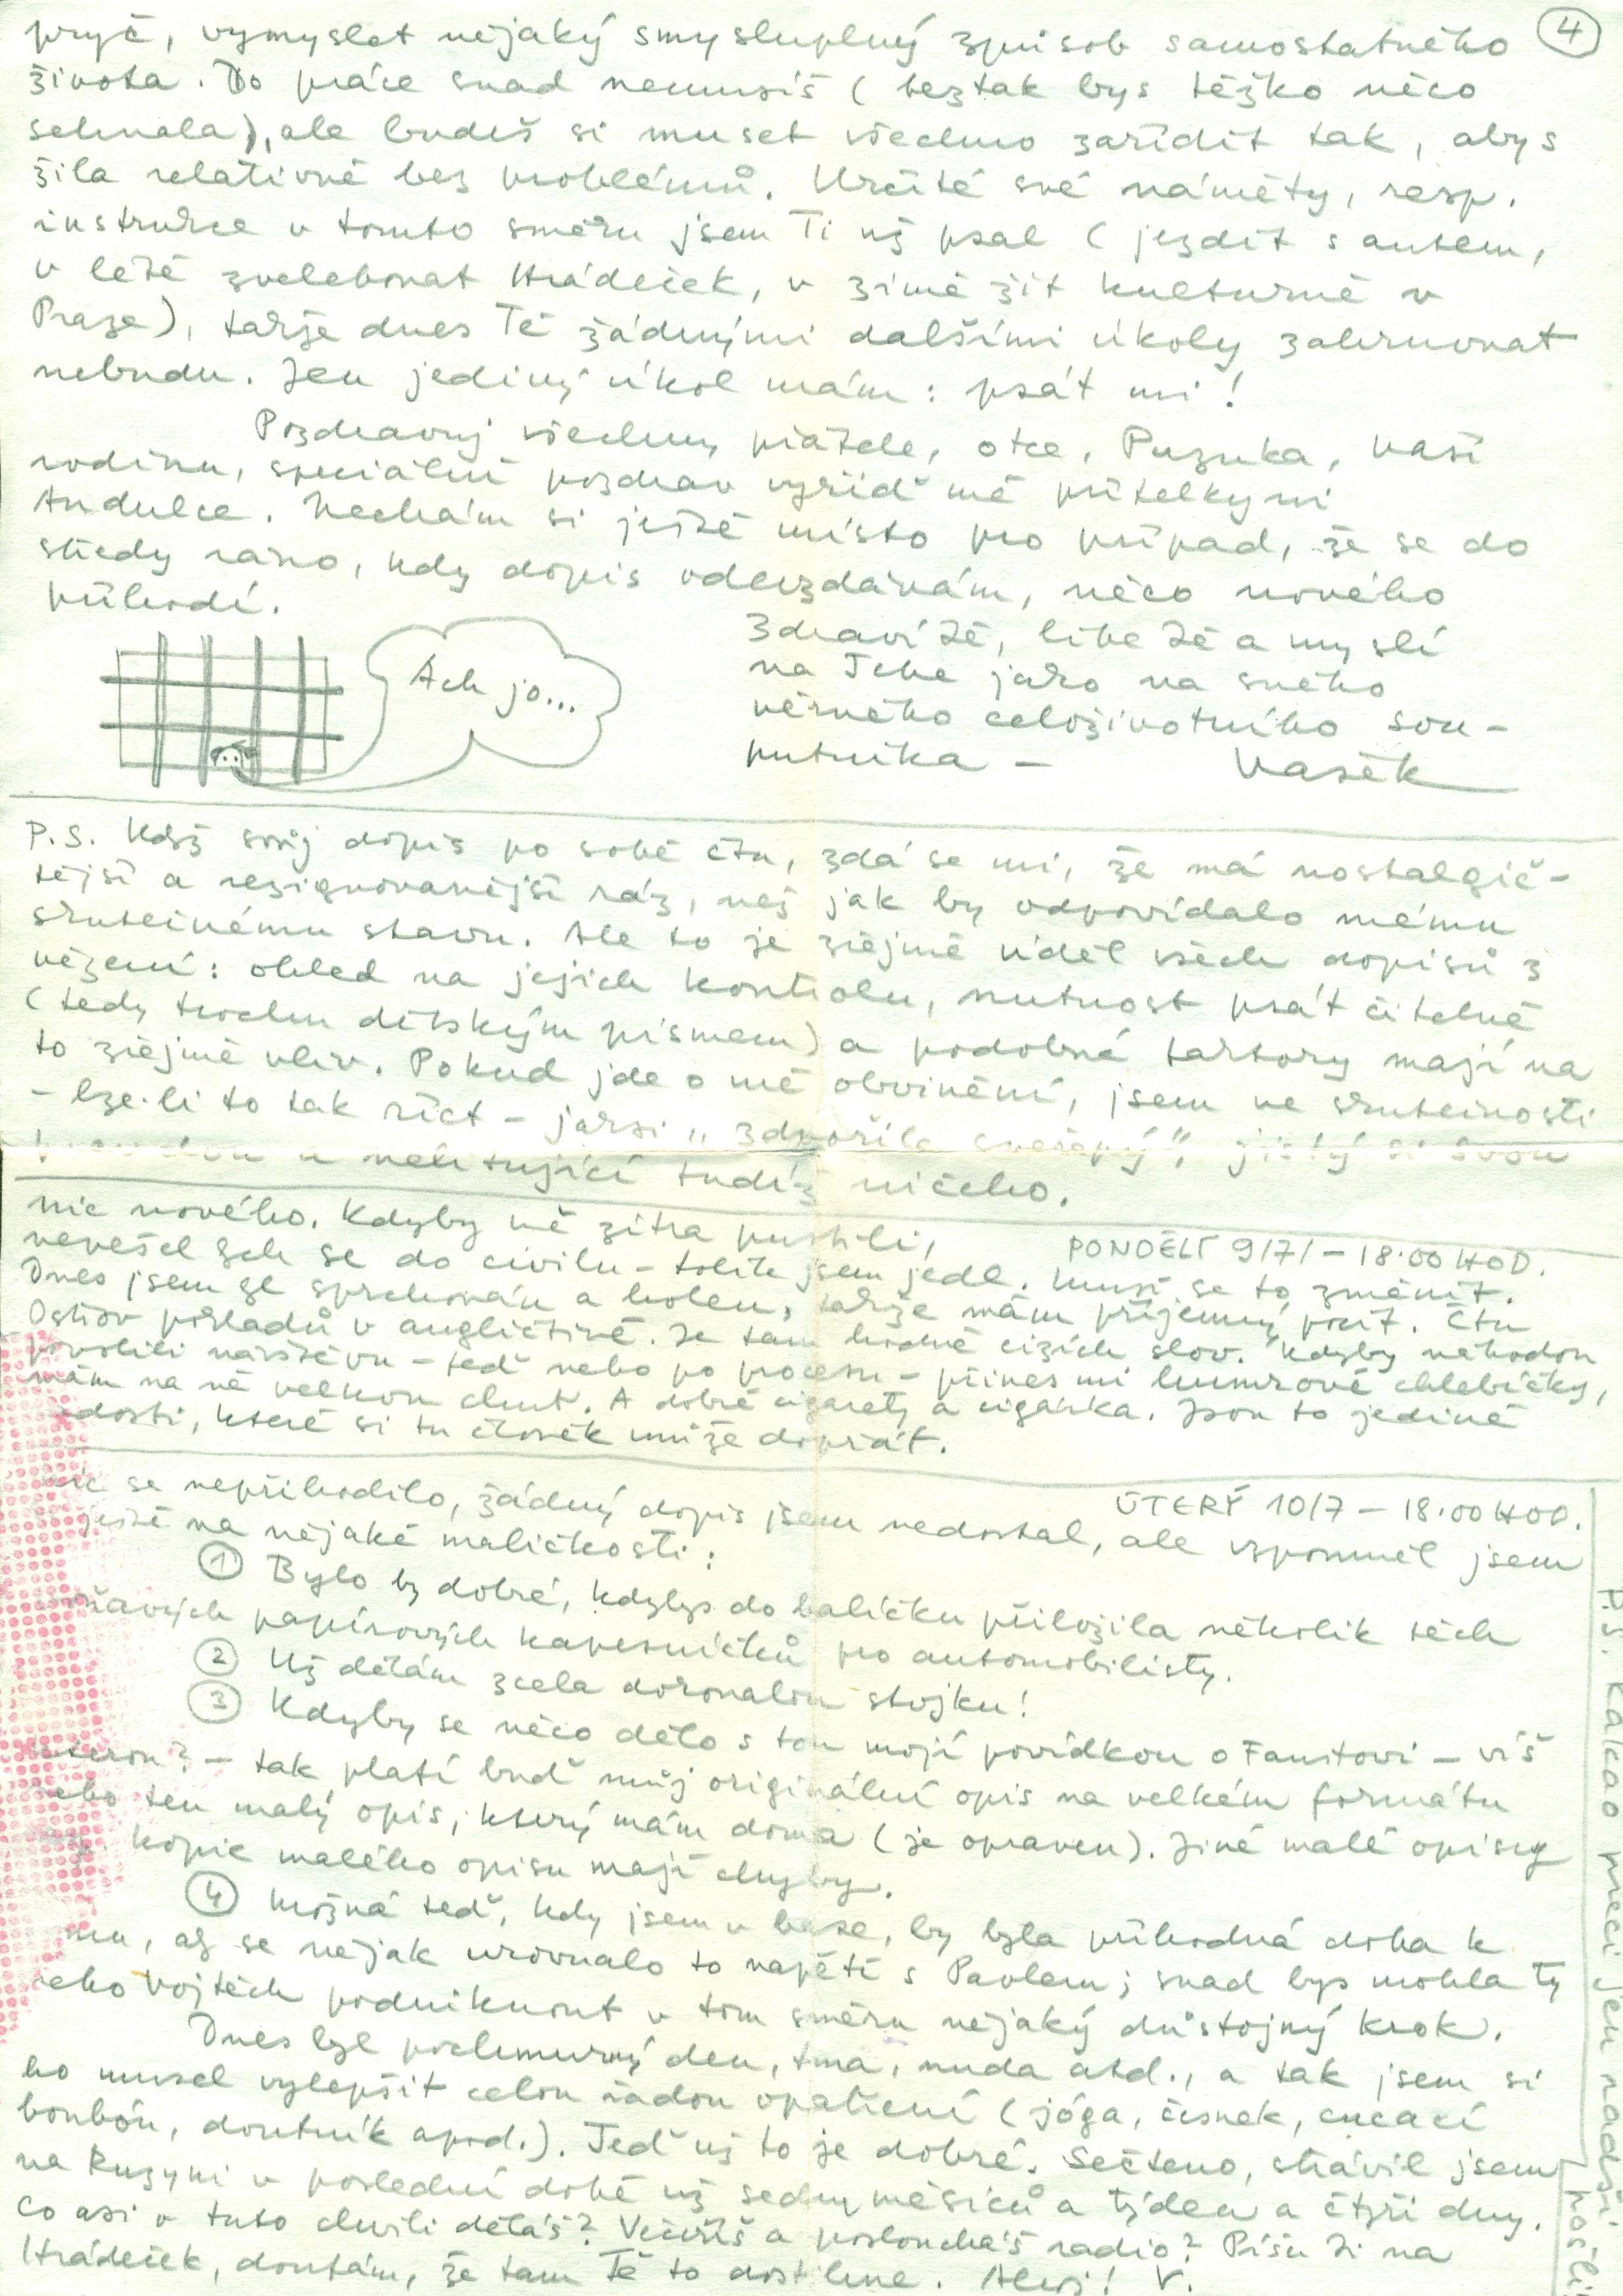 pryč, vymyslet nějaký smysluplný způsob samostatného
④
života. Do práce snad nemusíš (beztak bys těžko něco
sehnala), ale budeš si muset všechno zařídit tak, abys
žila relativně bez problémů. Určité své náměty, resp.
instrukce v tomto směru jsem Ti už psal (jezdit s autem,
v létě zvelebovat Hrádeček, v zimě žít kulturně v
Praze), takže dnes Tě žádnými dalšími úkoly zahrnovat
nebudu. Jen jediný úkol mám: psát mi!
Pozdravuj všechny přátele, otce, Puzuka, Vaši
rodinu, speciální pozdrav vyřiď mé přítelkyni
Andulce. Nechám si ještě místo pro případ, že se do
středy ráno, kdy dopis odevzdávám, něco nového
přihodí.
Ach jo...
Zdraví Tě, líbe Tě a myslí
na Tebe jako na svého
věrného celoživotního sou-
putníka – Vašek
P.S. Když svůj dopis po sobě čtu, zdá se mi, že má nostalgič-
tější a rezignovanější ráz, než jak by odpovídalo mému
skutečnému stavu. Ale to je zřejmě úděl všech dopisů z
vězení: ohled na jejich kontrolu, nutnost psát čitelně
(tedy trochu dětským písmem) a podobné faktory mají na
to zřejmě vliv. Pokud jde o mé obvinění, jsem ve skutečnosti
- lze-li to tak říct – jaksi „zdvořile svéřepý“, jistý si svou
a nelitující tudíž ničeho.
PONDĚLÍ 9/7/ – 18.00 HOD.
Nic nového. Kdyby mě zítra pustili,
nevešel bych se do civilu – tolik jsem jedl. Musí se to změnit.
Dnes jsem se sprchován a holen, takže mám příjemný pocit. Čtu
Ostrov pokladů v angličtině. Je tam hodně cizích slov. Kdyby náhodou
povolili návštěvu – teď nebo po procesu – přines mi humrové chlebíčky,
mám na ně velkou chuť. A dobré cigarety a cigárka. Jsou to jediné
které si tu člověk může dopřát.
ÚTERÝ 10/7 – 18.00 HOD.
Nic se nepřihodilo, žádný dopis jsem nedostal, ale vzpomněl jsem
si ještě na nějaké maličkosti:
① Bylo by dobré, kdybys do balíčku přiložila několik těch
voňavých papírových kapesníčků pro automobilisty.
② Už dělám zcela dokonalou stojku!
③ Kdyby se něco dělo s tou mojí povídkou o Faustovi – víš
kterou? – tak platí buď můj originální opis na velkém formátu
nebo ten malý opis, který mám doma (je opraven). Jiné malé opisy
kopie malého opisu mají chyby.
④ Možná teď, kdy jsem v base, by byla příhodná doba k
mu, až se nějak urovnalo to napětí s Pavlem; snad bys mohla Ty
nebo Vojtěch podniknout v tom směru nějaký důstojný krok.
Dnes byl pochmurný den, tma, nuda atd., a tak jsem si
ho musel vylepšit celou řadou opatření (jóga, česnek, cucací
bonbón, doutník apod.). Teď už to je dobré. Sečteno, strávil jsem
na Ruzyni v poslední době už sedm měsíců a týden a čtyři dny.
Co asi v tuto chvíli děláš? Večeříš a posloucháš radio? Píšu Ti na
Hrádeček, doufám, že tam Tě to dostihne. Ahoj! V.
P.S. Kakao
jen